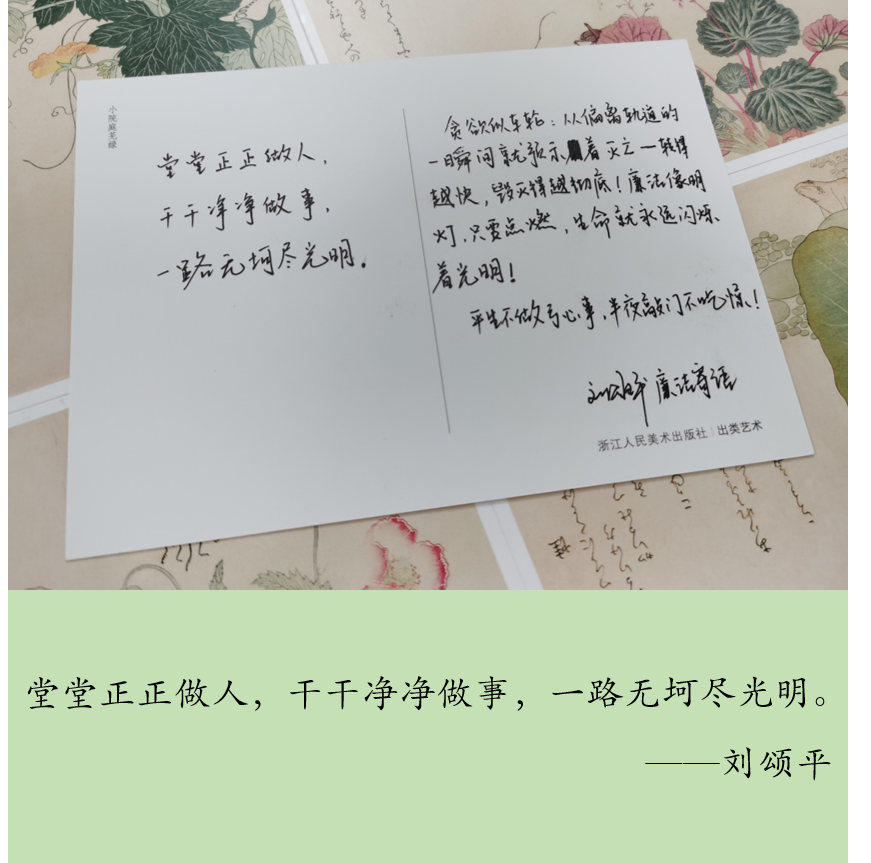 小院庭芜绿
堂堂正正做人,
干干净净做事,
一路无坷尽光明。
贪欲似车轮:从偏离轨道的
一瞬间就预示着灭亡一转得
越快,毁灭得越彻底!廉洁像明
灯,只要点燃,生命就永远闪烁
着光明!
平生不做亏心事,半夜敲门不吃惊!
刘颂平 廉洁寄语
浙江人民美术出版社|出类艺术
堂堂正正做人,干干净净做事,一路无坷尽光明。
——刘颂平